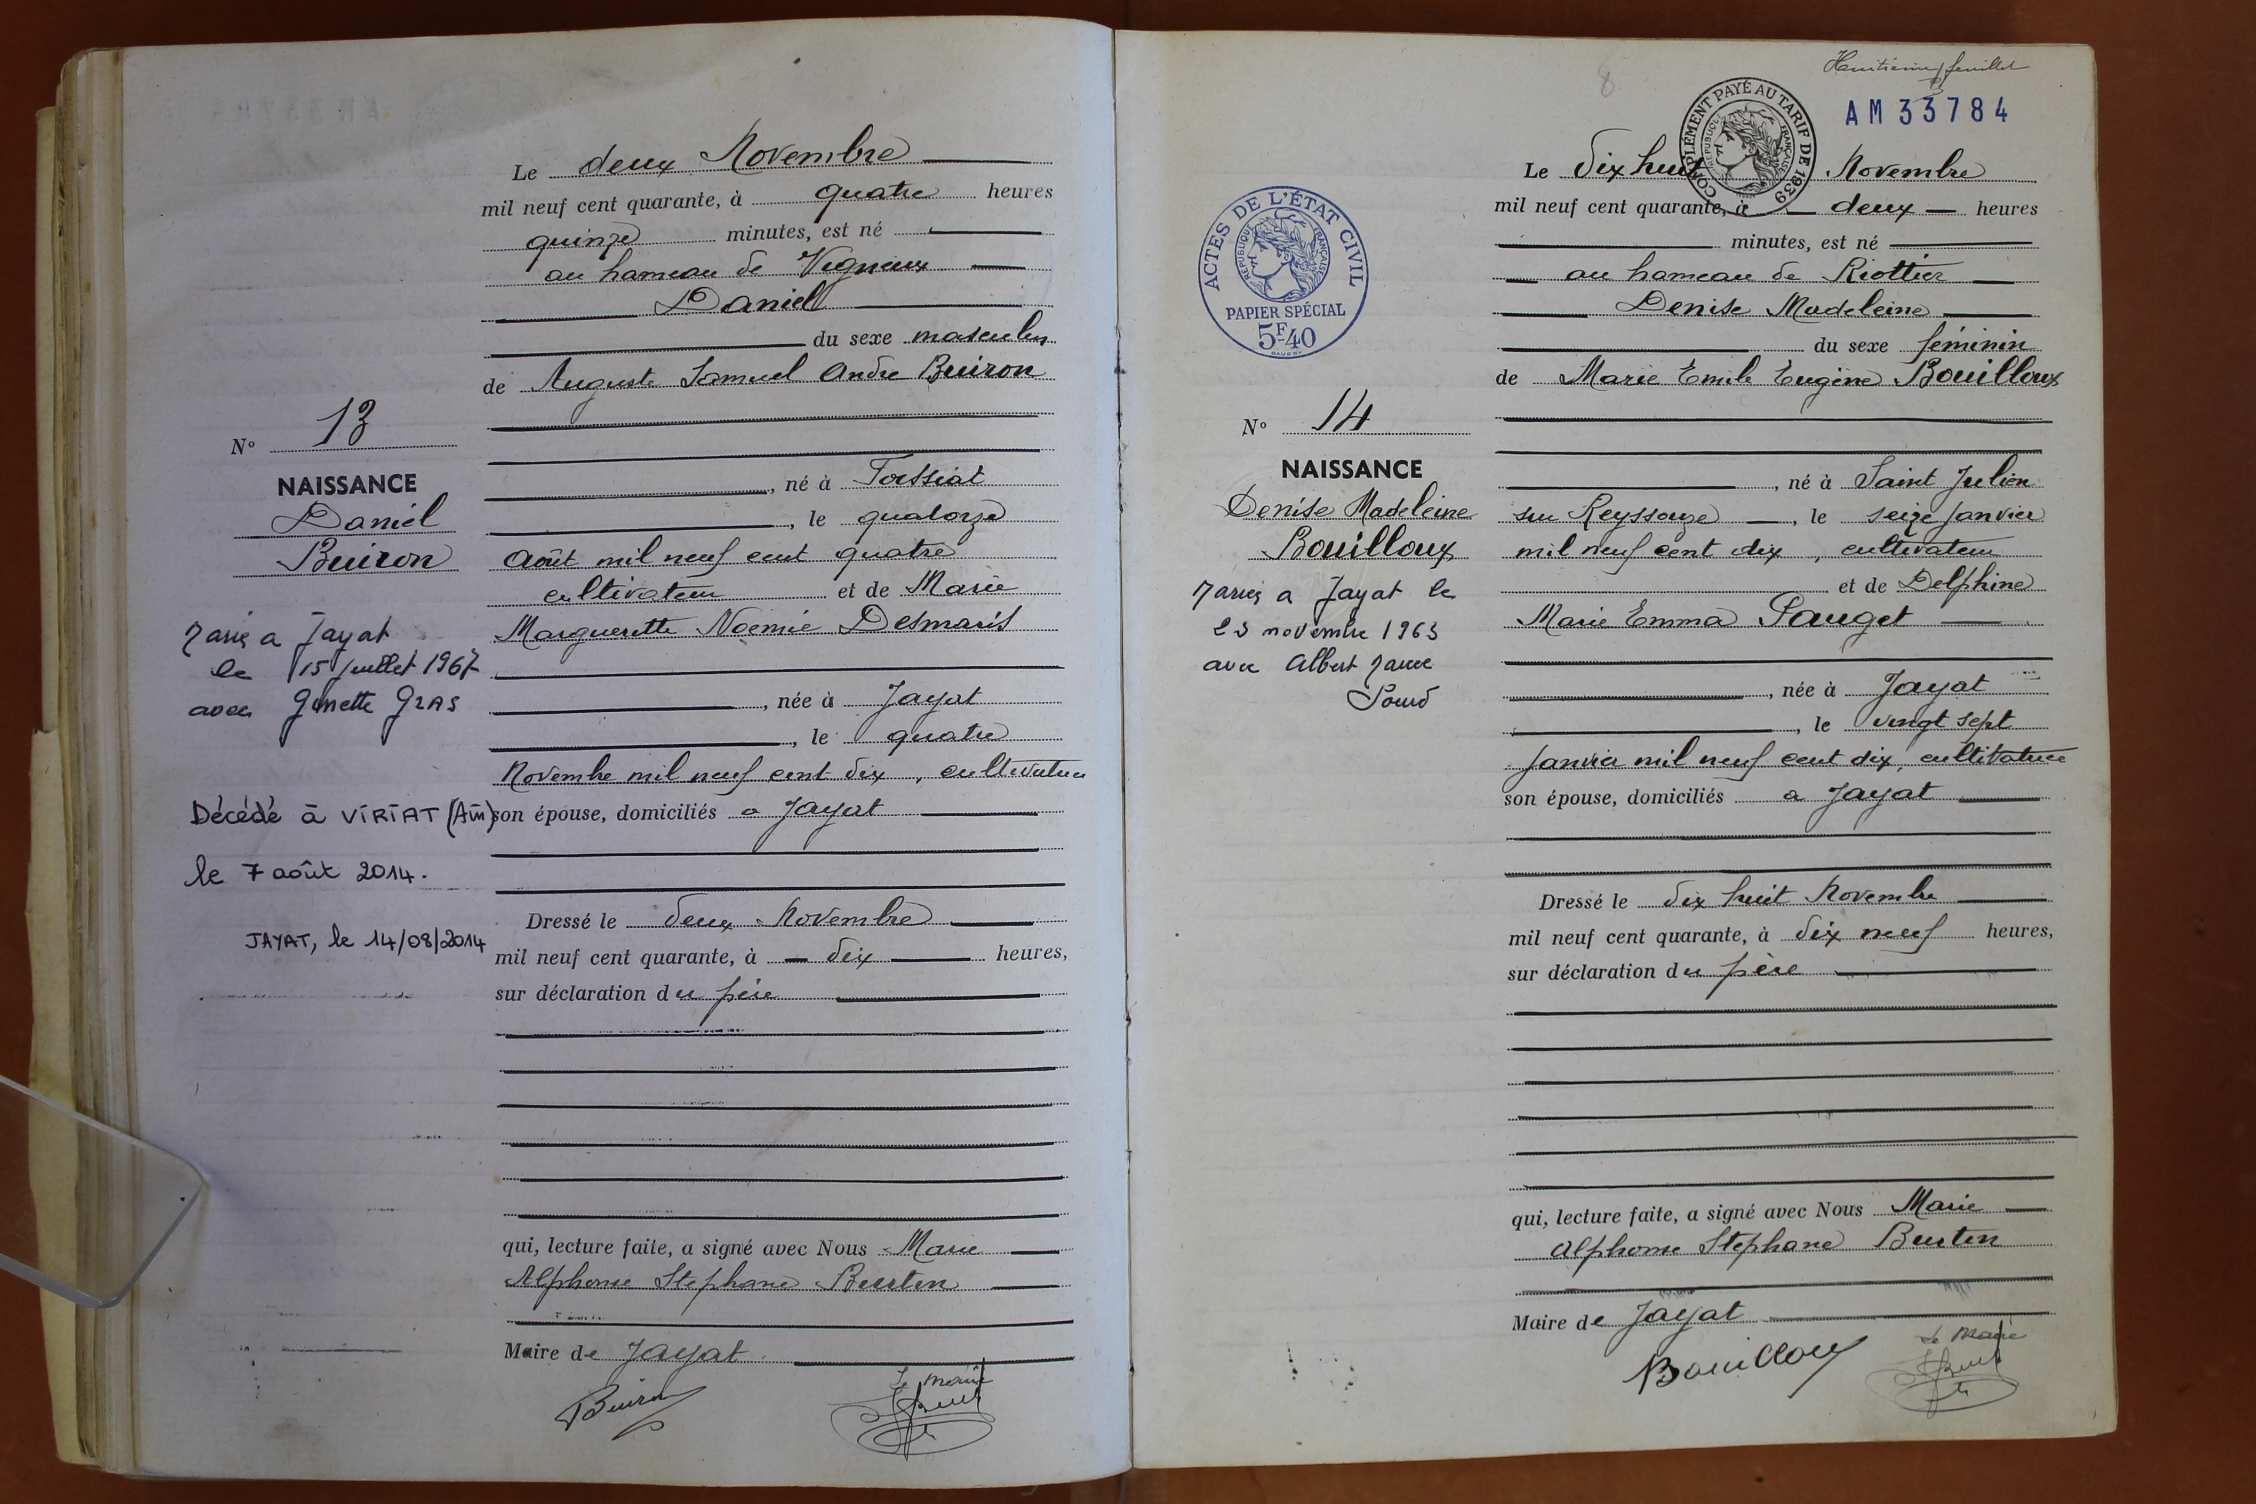 Le deux Novembre
mil neuf cent quarante, à quatre heures
quinze minutes, est né
au hameau de Vigneux
Daniel
du sexe masculin
de Auguste Samuel André Buiron
N° 13
NAISSANCE
Daniel
Buiron
né à Tossiat
, le quatorze
Août mil neuf cent quatre
cultivateur et de Marie
Marguerette Noémie Desmaris
Marié a Jayat
le 15 juillet 1967
avec Ginette GRAS
, née à Jayat
, le quatre
Novembre mil neuf cent dix, cultivatrice
son épouse, domiciliés a Jayat
Décédé à VIRIAT (Ain)
le 7 août 2014.
JAYAT, le 14/08/2014
Dressé le deux Novembre
mil neuf cent quarante, à dix heures,
sur déclaration du père
qui, lecture faite, a signé avec Nous Marie
Alphonse Stephane Burtin
Maire de Jayat
Buiron
Le Maire
Huitième feuillet
8
AM 33784
COMPLÉMENT PAYÉ AU TARIF DE 1939
RÉPUBLIQUE FRANÇAISE
ACTES DE L'ÉTAT CIVIL
RÉPUBLIQUE FRANÇAISE
PAPIER SPÉCIAL
5F40
Le Dix huit Novembre
mil neuf cent quarante, à deux heures
minutes, est né
au hameau de Riottier
Denise Madeleine
du sexe féminin
de Marie Emile Eugène Bouilloux
N° 14
NAISSANCE
Denise Madeleine
Bouilloux
, né à Saint Julien
sur Reyssouze, le seize janvier
mil neuf cent dix, cultivateur
et de Delphine
Marie Emma Pauget
Mariée a Jayat le
23 novembre 1963
avec Albert Marie
, née à Jayat
, le vingt sept
Janvier mil neuf cent dix, cultivatrice
son épouse, domiciliés a Jayat
Dressé le dix huit Novembre
mil neuf cent quarante, à dix neuf heures,
sur déclaration du père
qui, lecture faite, a signé avec Nous Marie
Alphonse Stephane Burtin
Maire de Jayat
Bouilloux
Le Maire